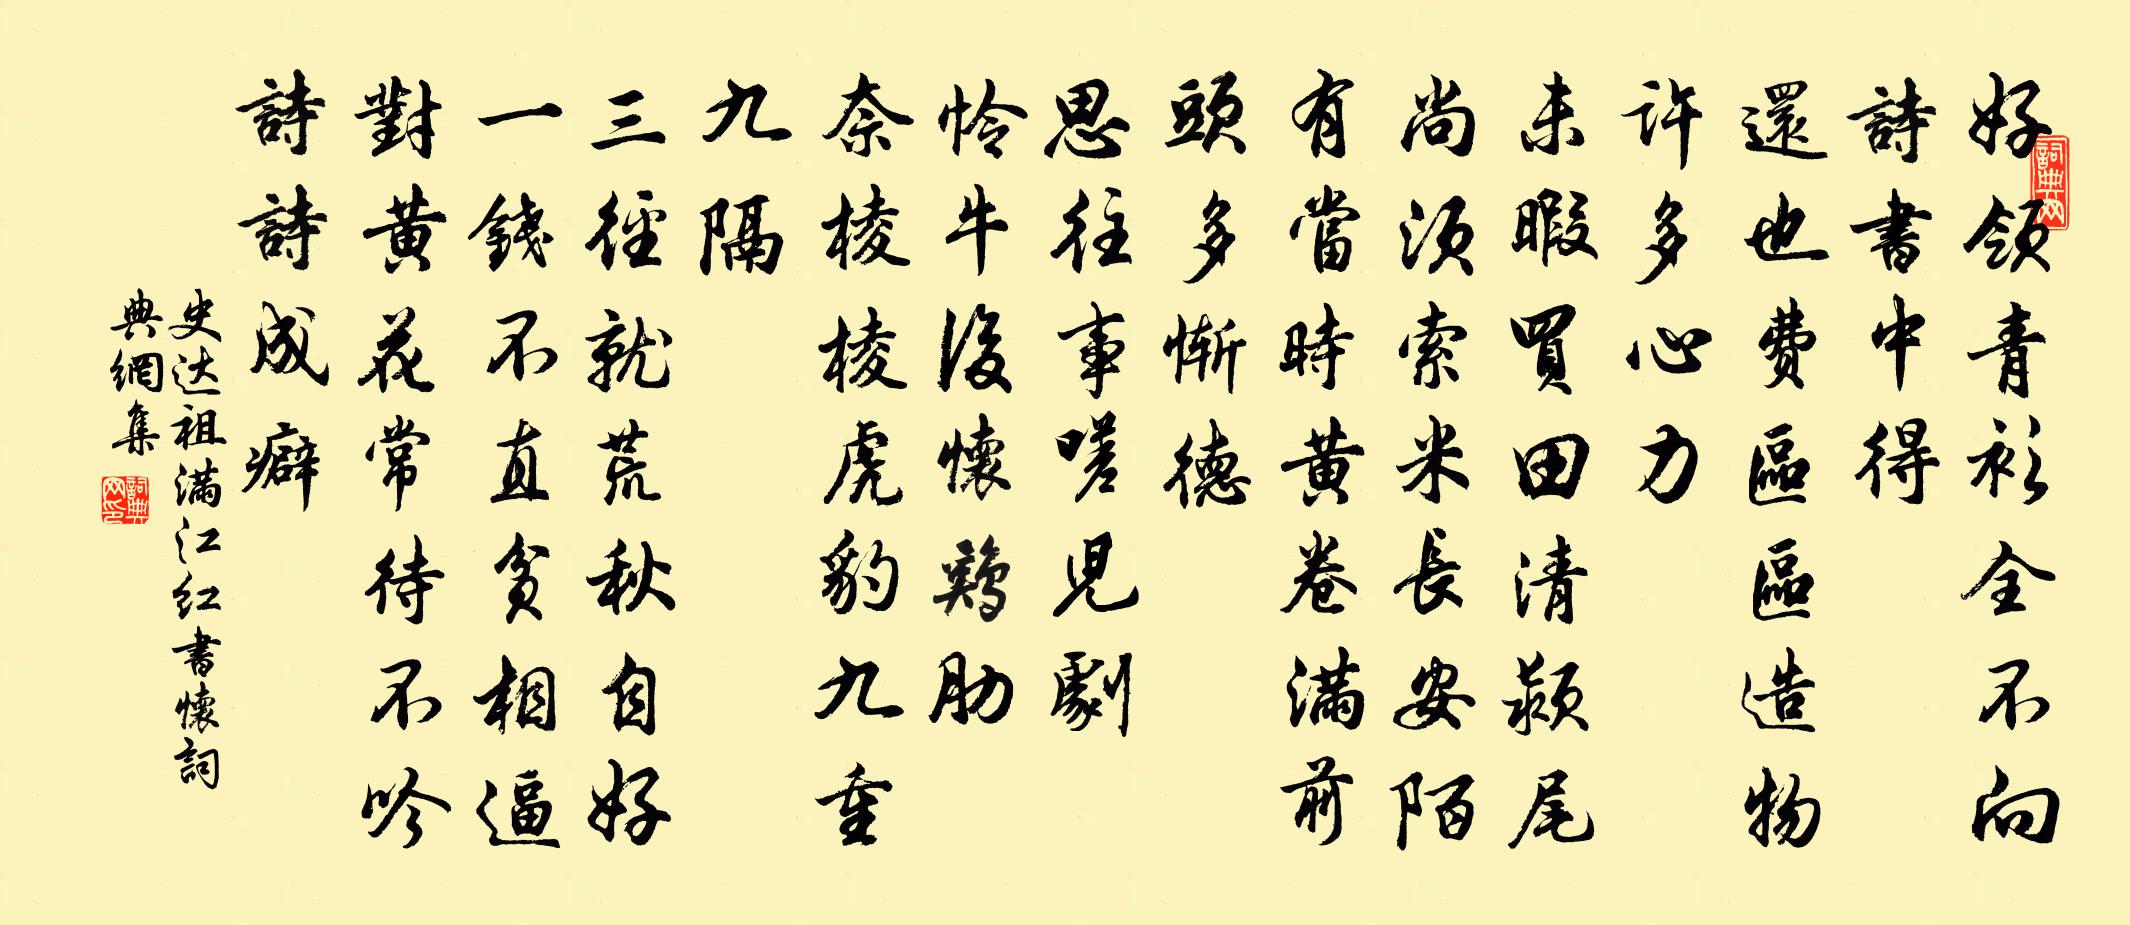 好領青衫全不向
詩書中得
還也費區區造物
許多心力
未暇買田清潁尾
尚須索米長安陌
有當時黃卷滿前
頭多慚德
思往事嗟兒劇
怜牛後懷鷄肋
奈棱棱虎豹九重
九隔
三徑就荒秋自好
一錢不直貧相逼
對黃花常待不吟
詩詩成癖
史达祖满江红書懷詞
典網集
詞典网
詞典网印